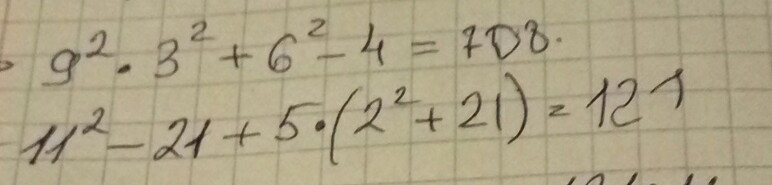 9² · 3² + 6² - 4 = 708.
11² - 21 + 5 · (2² + 21) = 121